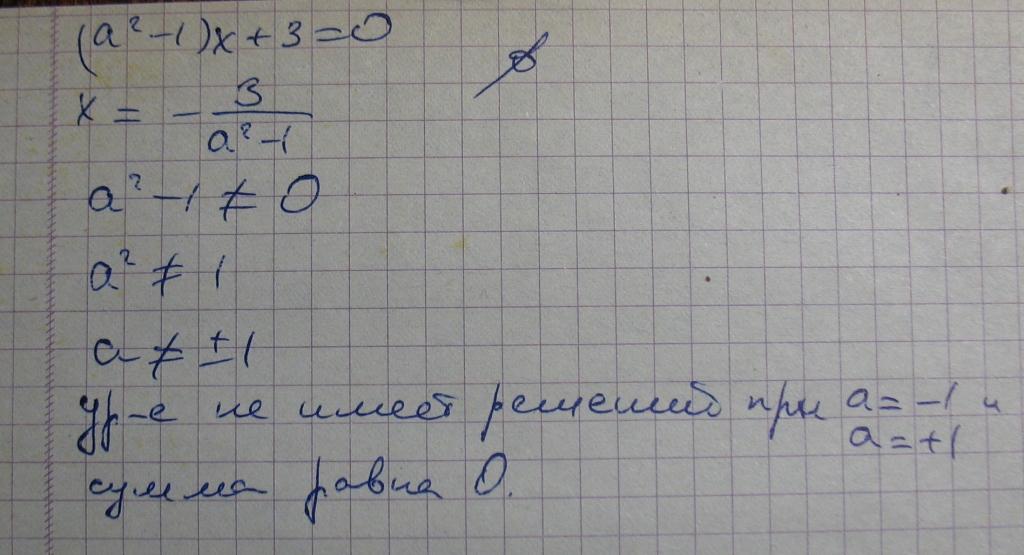 (a² - 1)x + 3 = 0
x = - 3/(a² - 1)
a² - 1 ≠ 0
a² ≠ 1
a ≠ ±1
ур-е не имеет решений при a = -1 и
a = +1
сумма равна 0.